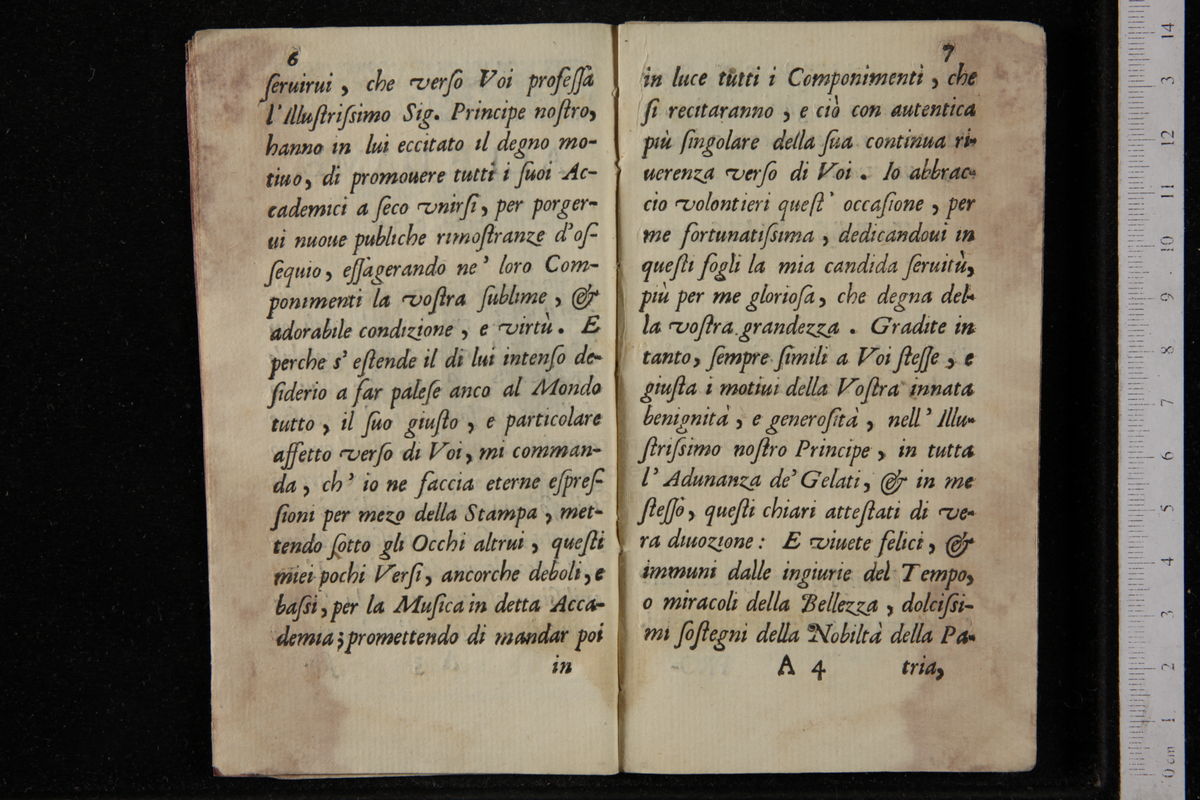 6
ſeruirui, che verſo Voi profeſſa
l'Illuſtriſsimo Sig. Principe noſtro,
hanno in lui eccitato il degno mo-
tiuo, di promouere tutti i ſuoi Ac-
cademici a ſeco vnirſi, per porger-
ui nuoue publiche rimoſtranze d'oſ-
ſequio, eſſagerando ne' loro Com-
ponimenti la voſtra ſublime, &
adorabile condizione, e virtù. E
perche s' eſtende il di lui intenſo de-
ſiderio a far paleſe anco al Mondo
tutto, il ſuo giuſto, e particolare
affetto verſo di Voi, mi comman-
da, ch' io ne faccia eterne eſpreſ-
ſioni per mezo della Stampa, met-
tendo ſotto gli Occhi altrui, queſti
miei pochi Verſi, ancorche deboli, e
baſsi, per la Muſica in detta Acca-
demia; promettendo di mandar poi
in
7
in luce tutti i Componimenti, che
ſi recitaranno, e ciò con autentica
più ſingolare della ſua continua ri-
uerenza verſo di Voi. Io abbrac-
cio volontieri queſt' occaſione, per
me fortunatiſsima, dedicandoui in
queſti fogli la mia candida ſeruitù,
più per me glorioſa, che degna del-
la voſtra grandezza. Gradite in
tanto, ſempre ſimili a Voi ſteſſe, e
giuſta i motiui della Voſtra innata
benignità, e generoſità, nell' Illu-
ſtriſsimo noſtro Principe, in tutta
l' Adunanza de' Gelati, & in me
ſteſſo, queſti chiari atteſtati di ve-
ra diuozione: E viuete felici, &
immuni dalle ingiurie del Tempo,
o miracoli della Bellezza, dolciſsi-
mi ſoſtegni della Nobiltà della Pa-
A 4 tria,
0 cm 1 2 3 4 5 6 7 8 9 10 11 12 13 14